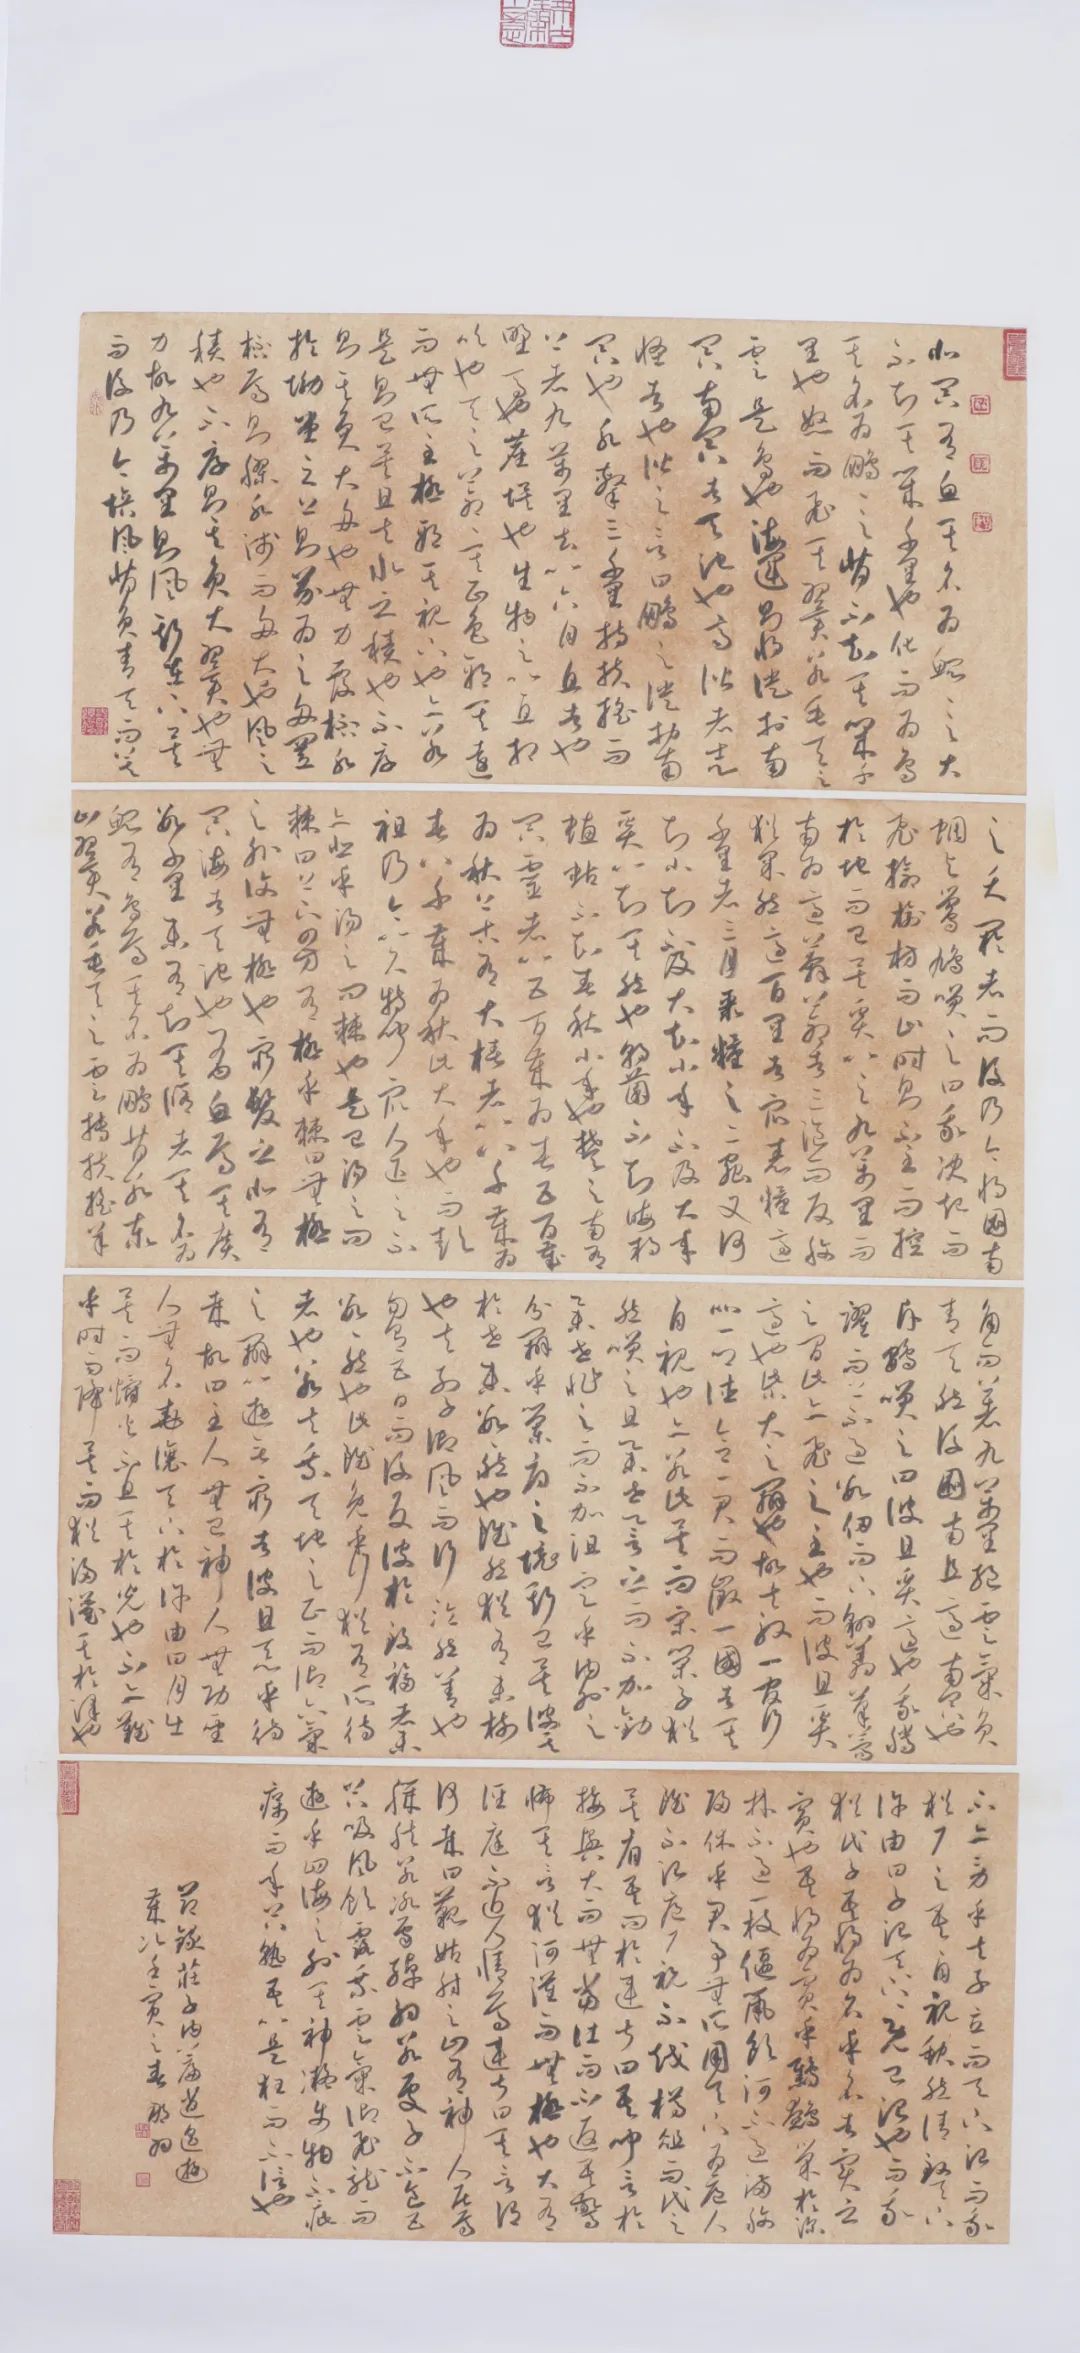 北冥有魚其名为鲲鲲之大
不知其幾千里也化而为鸟
其名为鹏鹏之背不知其幾千
里也怒而飞其翼若垂天之
雲是鸟也海運则将徙於南
冥南冥者天池也齐谐者志
怪者也谐之言曰鹏之徙於南
冥也水擊三千里搏扶摇而
上者九萬里去以六月息者也
野马也塵埃也生物之以息相
吹也天之蒼蒼其正色邪其遠
而無所至極邪其視下也亦若
是则已矣且夫水之積也不厚
则其負大舟也無力覆杯水
於坳堂之上则芥为之舟置
杯焉则膠水浅而舟大也風之
積也不厚则其負大翼也無
力故九萬里则風斯在下矣
而後乃今培風背負青天而莫
之夭閼者而後乃今将圖南
蜩與鸴鳩笑之曰我决起而
飞搶榆枋而止时则不至而控
於地而已矣奚以之九萬里而
南为適莽蒼者三湌而反腹
猶果然適百里者宿舂糧適
千里者三月聚糧之二蟲又何
知小知不及大知小年不及大年
奚以知其然也朝菌不知晦朔
蟪蛄不知春秋小年也楚之南有
冥靈者以五百歲为春五百歲
为秋上古有大椿者以八千歲为
春八千歲为秋此大年也而彭
祖乃今以久特聞衆人匹之不
亦悲乎湯之问棘也是已湯之问
棘曰上下四方有極乎棘曰無極
之外復無極也窮髮之北有
冥海者天池也有魚焉其廣
数千里未有知其修者其名为
鲲有鸟焉其名为鹏背若泰
山翼若垂天之雲搏扶摇羊
角而上者九萬里絕雲氣負
青天然後圖南且適南冥也
斥鴳笑之曰彼且奚適也我騰
躍而上不過数仞而下翱翔蓬蒿
之间此亦飞之至也而彼且奚
適也此小大之辯也故夫知效一官行
比一鄉德合一君而徵一國者其
自視也亦若此矣而宋榮子猶
然笑之且舉世譽之而不加勸
舉世非之而不加沮定乎内外之
分辯乎榮辱之境斯已矣彼其
於世未数数然也雖然猶有未樹
也夫列子御風而行泠然善也
旬有五日而後反彼於致福者未
数数然也此雖免乎行猶有所待
者也若夫乘天地之正而御六氣
之辯以遊無窮者彼且恶乎待
哉故曰至人無己神人無功聖
人無名堯讓天下於許由曰日月出
矣而爝火不息其於光也不亦難
乎时雨降矣而猶浸灌其於澤也
不亦勞乎夫子立而天下治而我
猶尸之吾自視缺然请致天下
許由曰子治天下天下既已治也而我
猶代子吾将为名乎名者實之
賓也吾将为賓乎鷦鷯巢於深
林不過一枝偃鼠飲河不過滿腹
歸休乎君予無所用天下为庖人
雖不治庖尸祝不越樽俎而代之
矣肩吾问於連叔曰吾聞言於
接輿大而無當往而不返吾驚
怖其言猶河漢而無極也大有
徑庭不近人情焉連叔曰其言谓
何哉曰藐姑射之山有神人居焉
肌膚若冰雪綽約若處子不食五
穀吸風飲露乘雲氣御飞龍而
遊乎四海之外其神凝使物不疵
癘而年穀熟吾以是狂而不信也
節錄莊子内篇逍遥遊